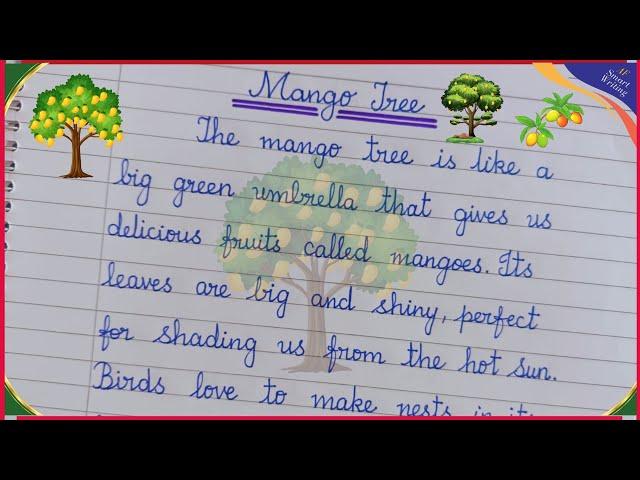 Mango Tree
AF
Smart
Writing
The mango tree is like a
big green umbrella that gives us
delicious fruits called mangoes. Its
leaves are big and shiny, perfect
for shading us from the hot sun.
Birds love to make nests in its